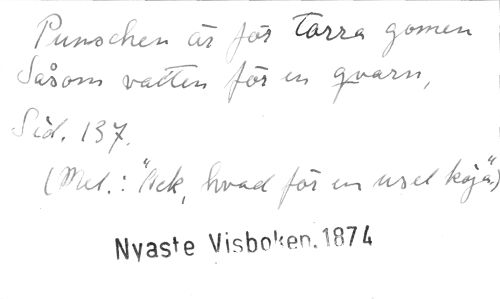 Punschen är för torra gomen
Såsom vatten för en qvarn,
Sid. 137.
(Mel.: "Ack, hvad för en usel koja".)
Nyaste Visboken. 1874